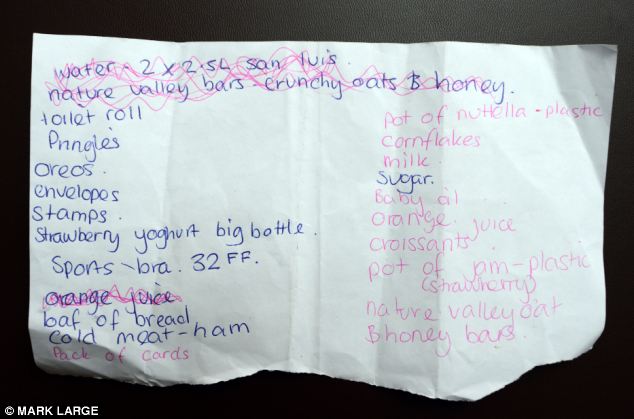 water - 2 x 2.5L san luis.
nature valley bars - crunchy oats & honey.
toilet roll
Pringles
oreos.
envelopes
Stamps.
Strawberry yoghurt big bottle.
Sports-bra. 32 FF.
orange juice
baf of bread
cold meat-ham
Pack of cards
pot of nuttella - plastic
cornflakes
milk.
Sugar.
Baby oil
orange juice
croissants.
pot of jam - plastic
(strawberry)
nature valley oat
& honey bars.
© MARK LARGE